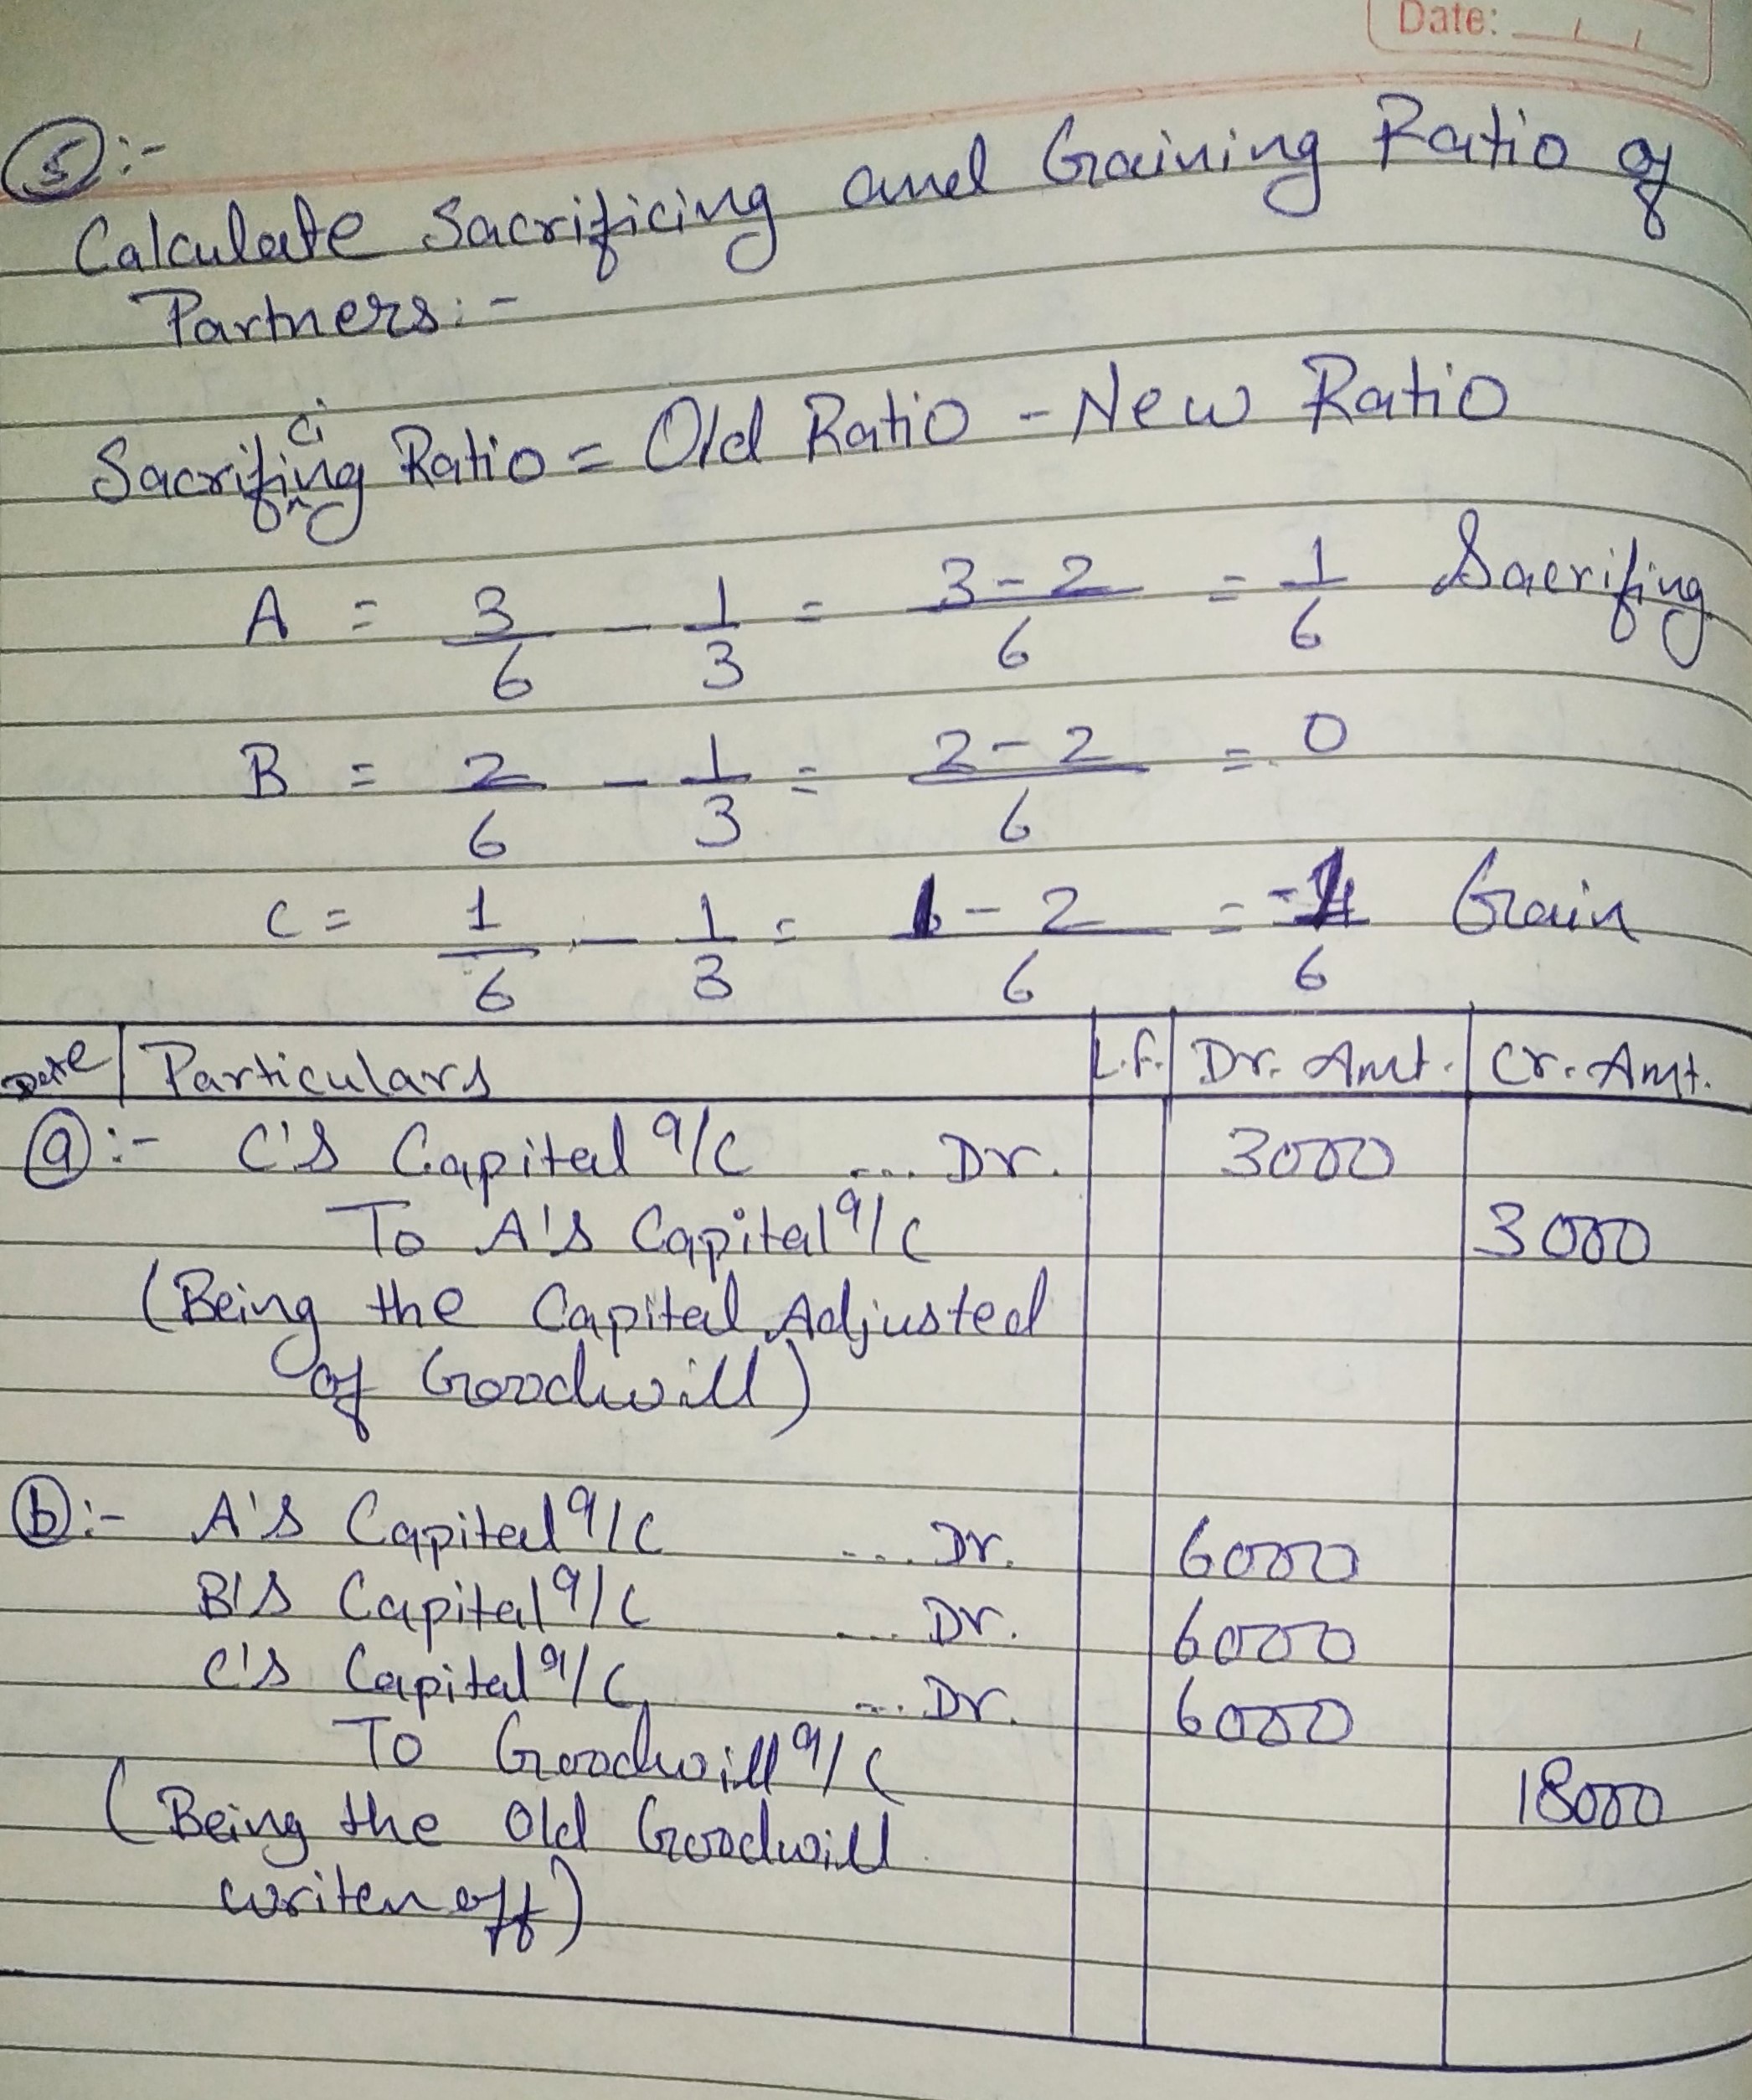 Date: __/__/__
5:-
Calculate Sacrificing and Gaining Ratio of
Partners:-
Sacrificing Ratio = Old Ratio - New Ratio
A = 3/6 - 1/3 = 3-2/6 = 1/6 Sacrifing
B = 2/6 - 1/3 = 2-2/6 = 0
C = 1/6 - 1/3 = 1-2/6 = -1/6 Gain
Date | Particulars | L.F. | Dr. Amt. | Cr. Amt.
(a):- C's Capital a/c ... Dr. 3000
To A's Capital a/c 3000
(Being the Capital Adjusted
of Goodwill)
(b):- A's Capital a/c ... Dr. 6000
B's Capital a/c ... Dr. 6000
C's Capital a/c ... Dr. 6000
To Goodwill a/c 18000
(Being the Old Goodwill
writen off)